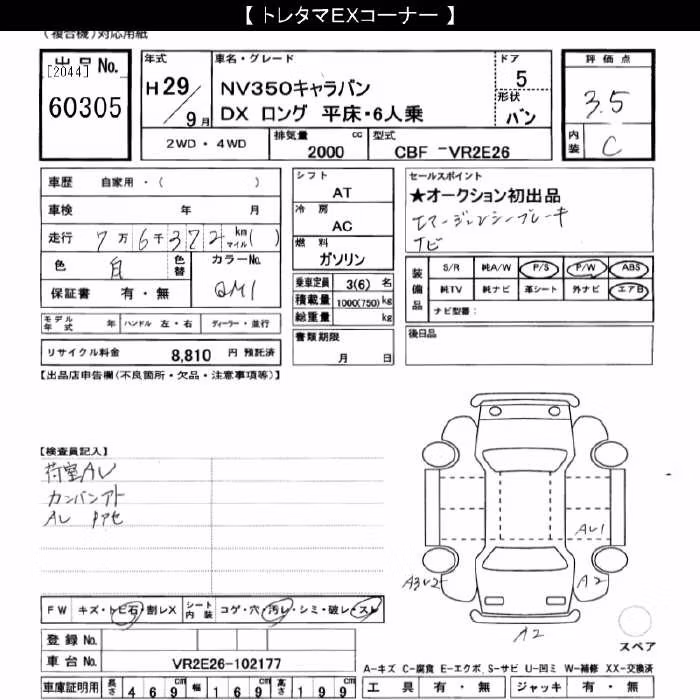 【 トレタマEXコーナー 】
(複合機)対応用紙
出品 No.
[2044]
60305
年式
H29/9月
車名・グレード
NV350キャラバン
DX ロング 平床・6人乗
ドア
5
形状
バン
評価点
3.5
内装
C
2WD・4WD
排気量 2000 cc
型式 CBF -VR2E26
車歴 自家用・( )
車検 年 月
走行 7万6千372 km マイル( )
色 白 色替
カラーNo. QM1
保証書 有・無
シフト
AT
冷房
AC
燃料
ガソリン
乗車定員 3(6) 名
積載量 1000(750) kg
総重量 kg
書類期限
月 日
セールスポイント
★オークション初出品
エマージェンシーブレーキ
ナビ
装備品
S/R 純A/W P/S P/W ABS
純TV 純ナビ 革シート 外ナビ エアB
ナビ型番:
後日品
モデル年式 年 ハンドル 左・右 ディーラー・並行
リサイクル料金 8,810 円 預託済
【出品店申告欄(不良箇所・欠品・注意事項等)】
【検査員記入】
荷室AU
カンバンアト
AU
AU1
A2
A2
FW キズ・トビ石・割レX シート内装 コゲ・穴・汚レ・シミ・破レ・スレ
登録 No.
車台 No. VR2E26-102177
スペア
A-キズ C-腐食 E-エクボ S-サビ U-凹ミ W-補修 XX-交換済
車庫証明用 長さ 469cm 幅 169cm 高さ 199cm
工具 有・無 ジャッキ 有・無